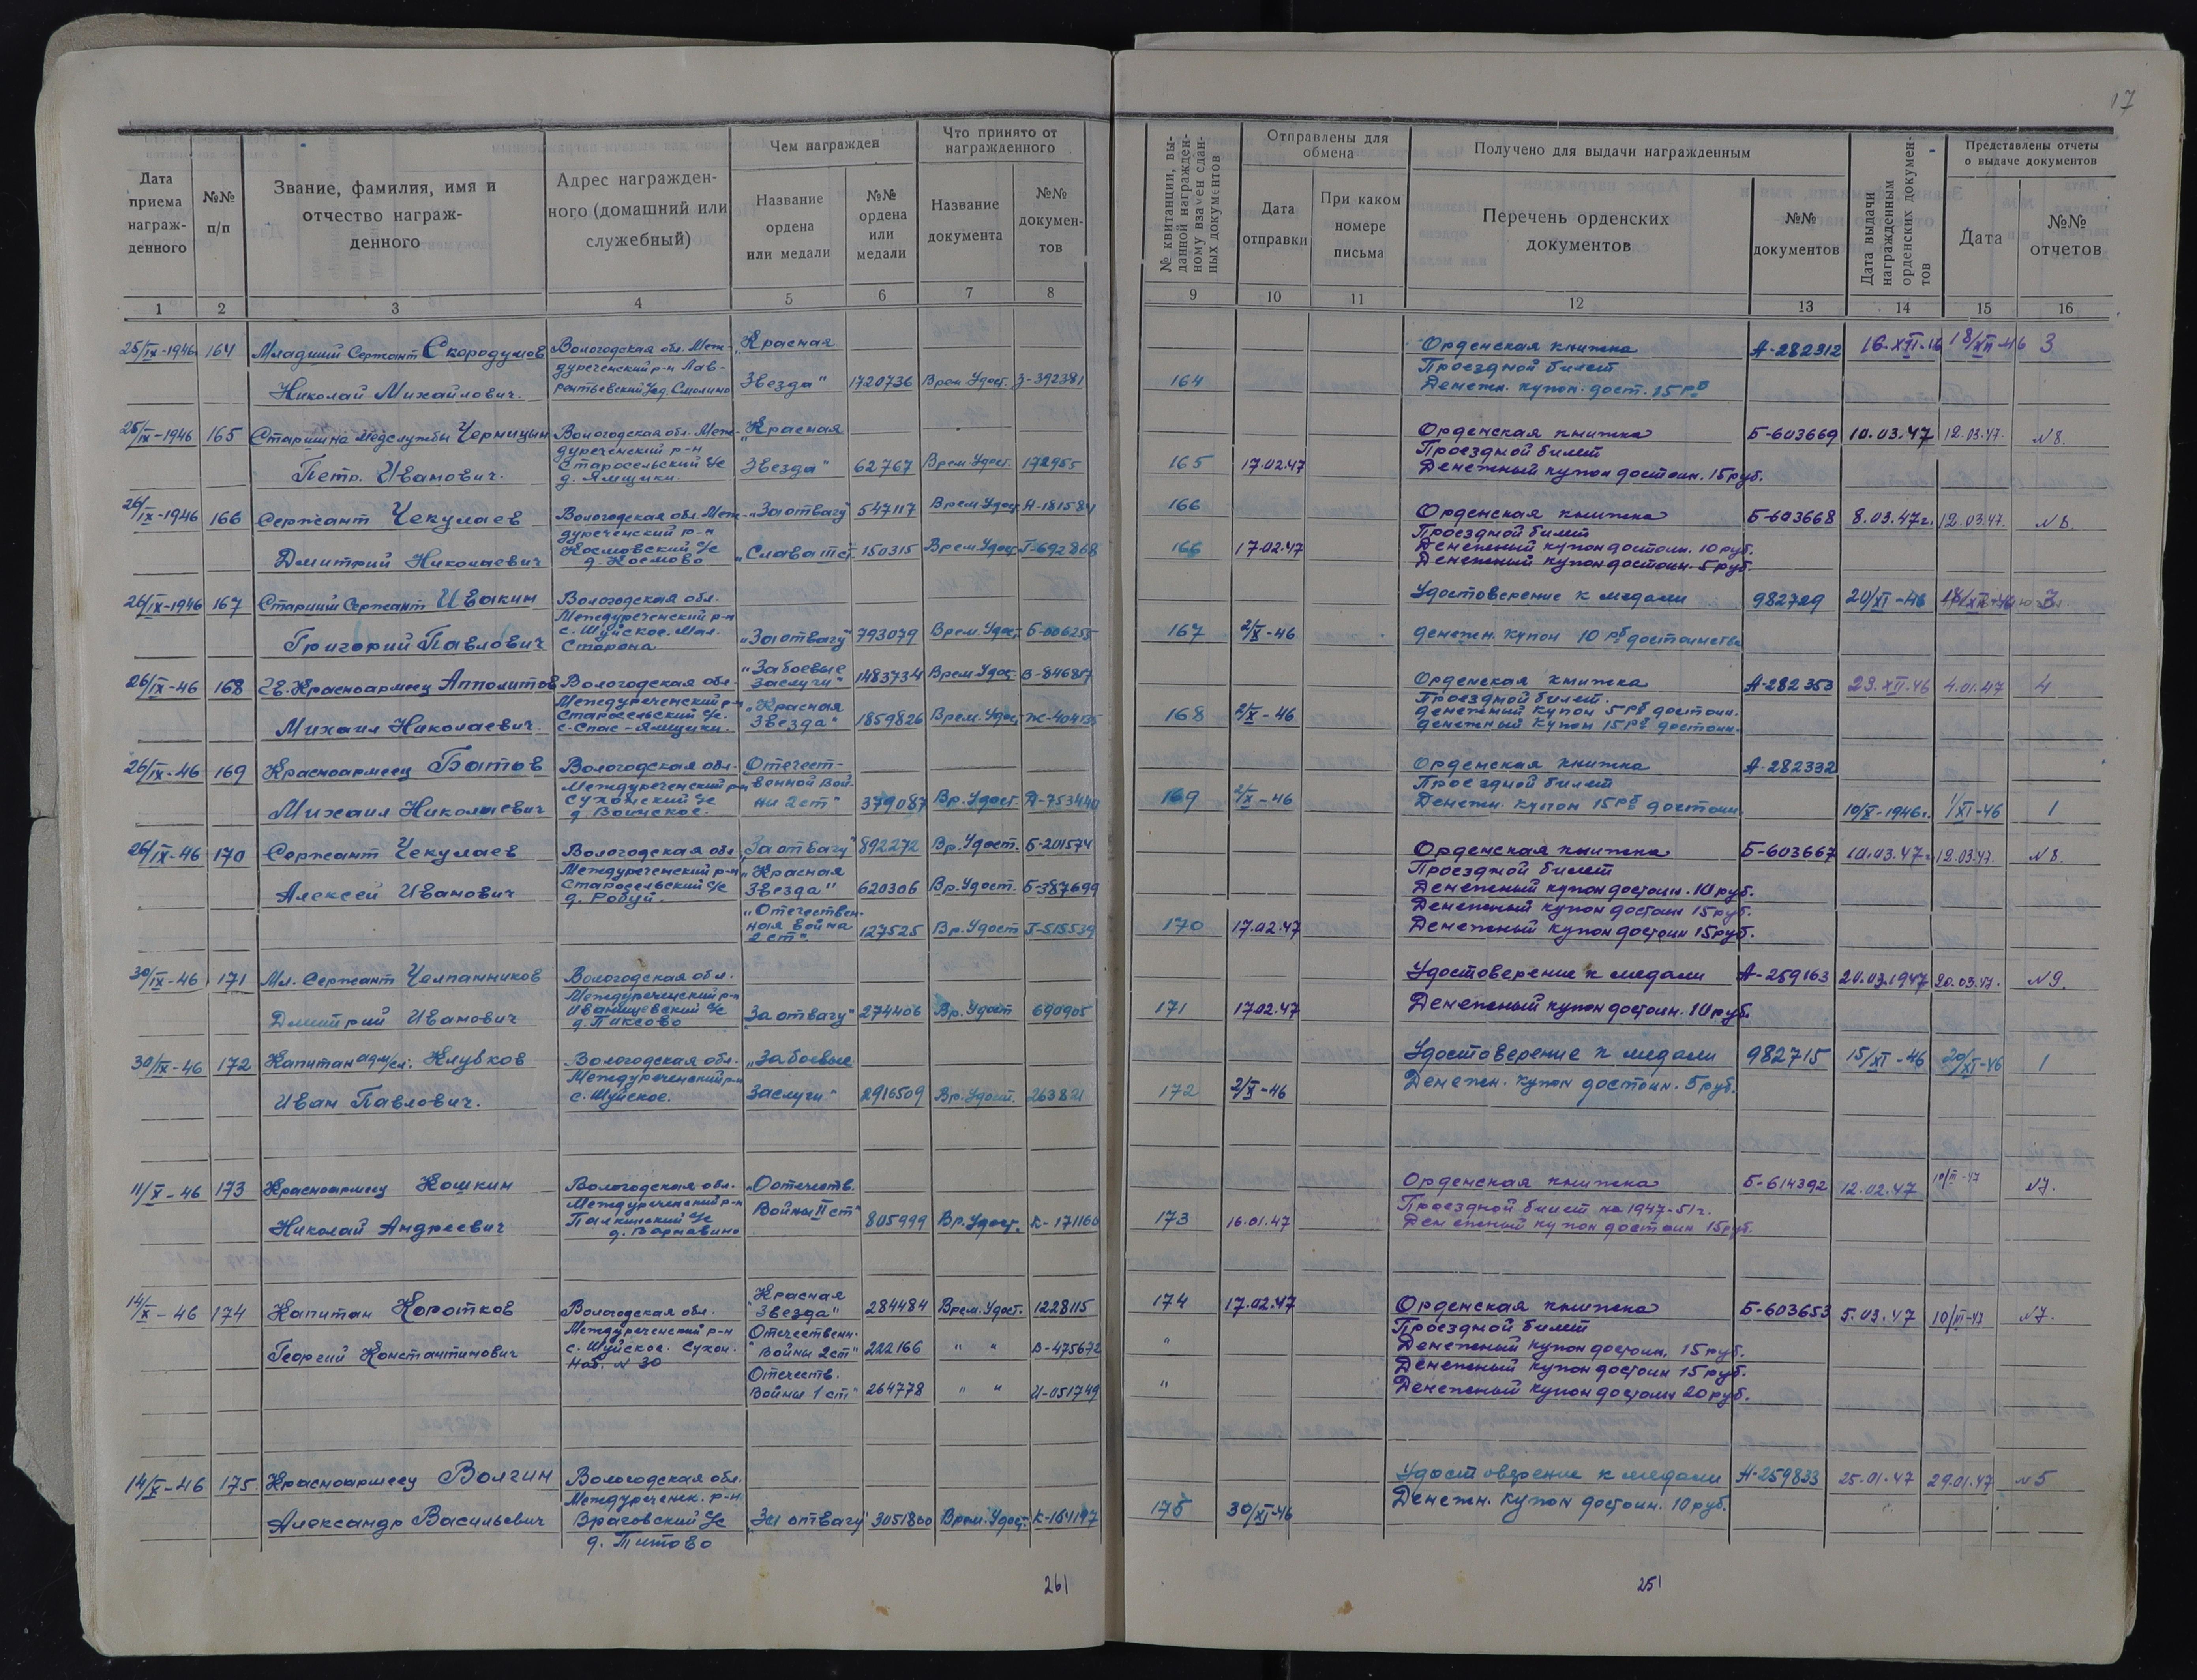 17
Дата приема награж-денного
№№ п/п
Звание, фамилия, имя и отчество награж-денного
Адрес награжден-ного (домашний или служебный)
Чем награжден
Название ордена или медали
№№ ордена или медали
Что принято от награжденного
Название документа
№№ докумен-тов
№ квитанции, вы-данной награжден-ному взамен сдан-ных документов
Отправлены для обмена
Дата отправки
При каком номере письма
Получено для выдачи награжденным
Перечень орденских документов
№№ документов
Дата выдачи награжденным орденских документов
Представлены отчеты о выдаче документов
Дата
№№ отчетов
1 2 3 4 5 6 7 8 9 10 11 12 13 14 15 16
25/IX-1946 164 Младший Сержант Скородумов Вологодская обл. Меж- „Красная Орденская книжка А-282312 16.XII.46 18/XII-46 3
дуреченский р-н Лав- Проездной билет
Николай Михайлович. рентьевский с/с д. Смолино Звезда" 1720736 Врем. Удост. З-392381 164 Денежн. купон. дост. 15 рб
25/IX-1946 165 Старшина Медслужбы Черницын Вологодская обл. Меж- „Красная Орденская книжка Б-603669 10.03.47 12.03.47. N8.
дуреченский р-н Проездной билет
Петр. Иванович. Старосельский с/с Звезда" 62767 Врем Удост. 172955 165 17.02.47 Денежный купон достоин. 15 руб.
д. Ямщики.
26/IX-1946 166 Сержант Чекулаев Вологодская обл. Меж- „За отвагу" 547117 Врем Удост А-181584 166 Орденская книжка Б-603668 8.03.47г. 12.03.47. N8.
дуреченский р-н Проездной билет
Космовский с/с „Слава III ст. 150315 Врем Удост Г-692868 166 17.02.47 Денежный купон достоин. 10 руб.
Дмитрий Николаевич д. Космово Денежный купон достоин. 5 руб.
26/IX-1946 167 Старший Сержант Ивакин Вологодская обл. Удостоверение к медали 982729 20/XI-46 3
Междуреченский р-н
Григорий Павлович с. Шуйское. Мал. „За отвагу" 793079 Врем. Удост. Б-006255 167 2/X-46 денежн. купон 10 рб достоинства
Сторона
26/IX-46 168 Гв. Красноармеец Апполитов Вологодская обл. „За боевые заслуги" 1483734 Врем Удост В-846817 Орденская книжка А-282353 29.XII.46 4.01.47 4
Междуреченский р-н Проездной билет.
Старосельский с/с. „Красная денежный купон 5 рб достоин.
Михаил Николаевич. с. Спас-Ямщики. Звезда" 1859826 Врем. Удост Ж-404135 168 2/X-46 денежный купон 15 рб достоин.
26/IX-46 169 Красноармеец Батов Вологодская обл. Отечест- Орденская книжка А-282332
Междуреченский р-н венной Вой- Проездной билет
Михаил Николаевич Сухонский с/с ны 2 ст" 379087 Вр. Удост. Д-753440 169 2/X-46 Денежн. купон 15 рб достоин. 10/X-1946г. 1/XI-46 1
д Воинское.
26/IX-46 170 Сержант Чекулаев Вологодская обл „За отвагу" 892272 Вр. Удост. Б-201574 Орденская книжка Б-603667 10.03.47г. 12.03.47. N8.
Междуреченский р-н „Красная Проездной билет
Алексей Иванович Старосельский с/с Звезда" 620306 Вр. Удост. Б-387699 Денежный купон достоин. 10 руб.
д. Робуй. „Отечествен- Денежный купон достоин 15 руб.
ная война 2 ст". 127525 Вр. Удост Г-515539 170 17.02.47 Денежный купон достоин 15 руб.
30/IX-46 171 Мл. Сержант Челпанников Вологодская обл. Удостоверение к медали А-259163 20.03.1947 20.03.47. N9.
Междуреченский р-н
Дмитрий Иванович Иванищевский с/с За отвагу" 274406 Вр. Удост 690905 171 17.02.47 Денежный купон достоин. 10 руб.
д. Пиксово
30/IX-46 172 Капитан адм/сл. Клубков Вологодская обл. „За боевые Удостоверение к медали 982715 15/XI-46 20/XI-46 1
Междуреченский р-н
Иван Павлович. с. Шуйское. Заслуги" 2916509 Вр. Удост. 263821 172 2/X-46 Денежн. купон достоин. 5 руб.
11/X-46 173 Красноармеец Кошкин Вологодская обл. „Отечеств. Орденская книжка Б-614392 12.02.47 N7.
Междуреченский р-н Войны II ст" Проездной билет на 1947-51г.
Николай Андреевич Палкинский с/с 805999 Вр. Удост. К-171160 173 16.01.47 Денежный купон достоин 15 руб.
д. Варнавино
14/X-46 174 Капитан Коротков Вологодская обл. Красная "Звезда" 284484 Врем. Удост. 1228115 174 17.02.47 Орденская книжка Б-603653 5.03.47 10/III-47 N7.
Междуреченский р-н Отечественн. Проездной билет
Георгий Константинович с. Шуйское. Сухон. "Войны 2 ст" 222166 " " В-475672 " Денежный купон достоин. 15 руб.
Наб. N 30 Отечеств. Денежный купон достоин 15 руб.
Войны 1 ст" 264778 " " И-051749 " Денежный купон достоин 20 руб.
14/X-46 175. Красноармеец Волгин Вологодская обл. Удостоверение к медали А-259833 25.01.47 29.01.47 N5
Междуреченск. р-н.
Александр Васильевич Враговский с/с „За отвагу" 3051800 Врем. Удост. К-164197 175 30/XI-46 Денежн. купон достоин. 10 руб.
д. Титово
261
251